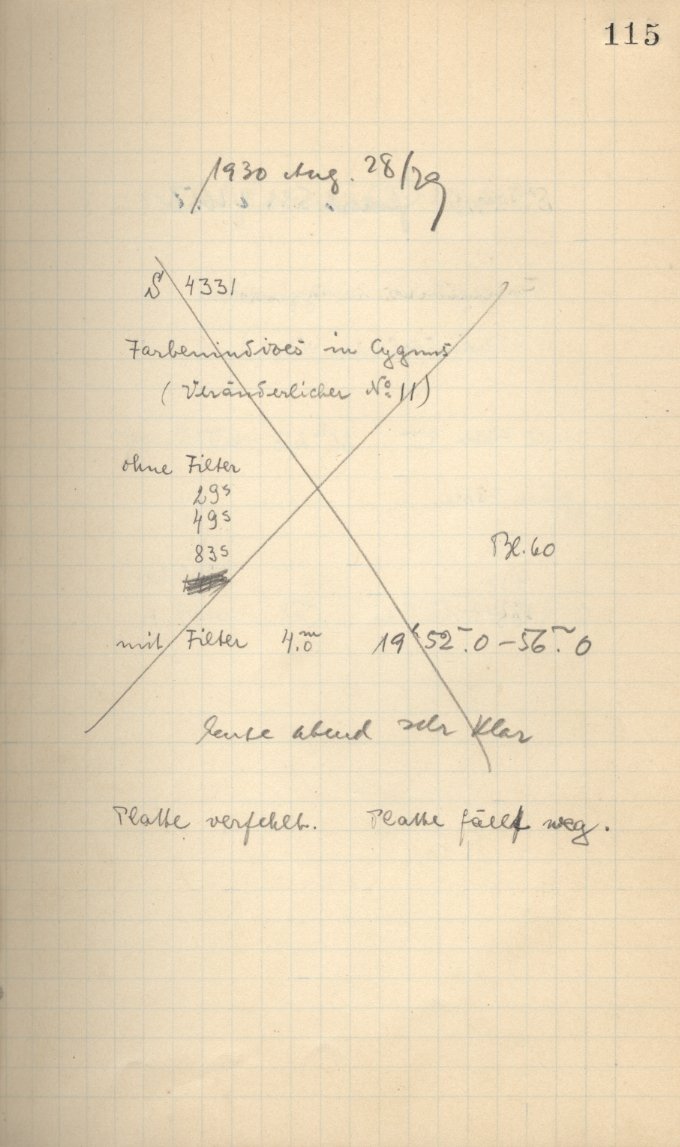 115
1930 Aug. 28/29
S 4331
Farbenindizes in Cygnus
(Veränderlicher No 11)
ohne Filter
29s
49s
83s
Bl. 60
mit Filter 4.m0 19h52m.0 – 56m.0
heute abend sehr klar
Platte verfehlt. Platte fällt weg.